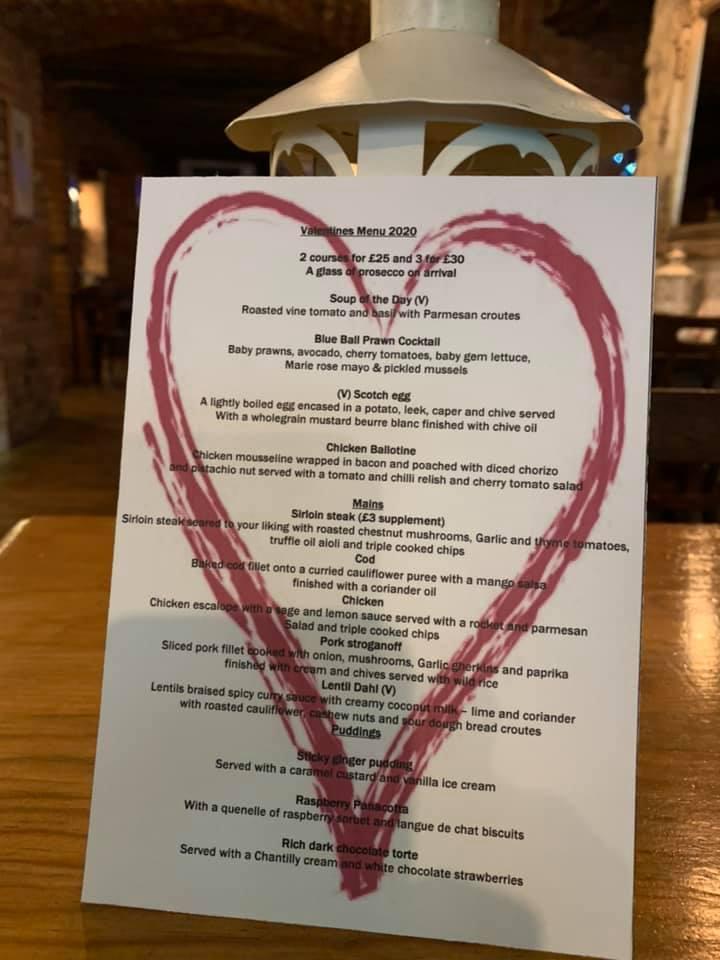 Valentines Menu 2020
2 courses for £25 and 3 for £30
A glass of prosecco on arrival
Soup of the Day (V)
Roasted vine tomato and basil with Parmesan croutes
Blue Ball Prawn Cocktail
Baby prawns, avocado, cherry tomatoes, baby gem lettuce,
Marie rose mayo & pickled mussels
(V) Scotch egg
A lightly boiled egg encased in a potato, leek, caper and chive served
With a wholegrain mustard beurre blanc finished with chive oil
Chicken Ballotine
Chicken mousseline wrapped in bacon and poached with diced chorizo
and pistachio nut served with a tomato and chilli relish and cherry tomato salad
Mains
Sirloin steak (£3 supplement)
Sirloin steak seared to your liking with roasted chestnut mushrooms, Garlic and thyme tomatoes,
truffle oil aioli and triple cooked chips
Cod
Baked cod fillet onto a curried cauliflower puree with a mango salsa
finished with a coriander oil
Chicken
Chicken escalope with a sage and lemon sauce served with a rocket and parmesan
Salad and triple cooked chips
Pork stroganoff
Sliced pork fillet cooked with onion, mushrooms, Garlic gherkins and paprika
finished with cream and chives served with wild rice
Lentil Dahl (V)
Lentils braised spicy curry sauce with creamy coconut milk – lime and coriander
with roasted cauliflower, cashew nuts and sour dough bread croutes
Puddings
Sticky ginger pudding
Served with a caramel custard and vanilla ice cream
Raspberry Panacotta
With a quenelle of raspberry sorbet and langue de chat biscuits
Rich dark chocolate torte
Served with a Chantilly cream and white chocolate strawberries